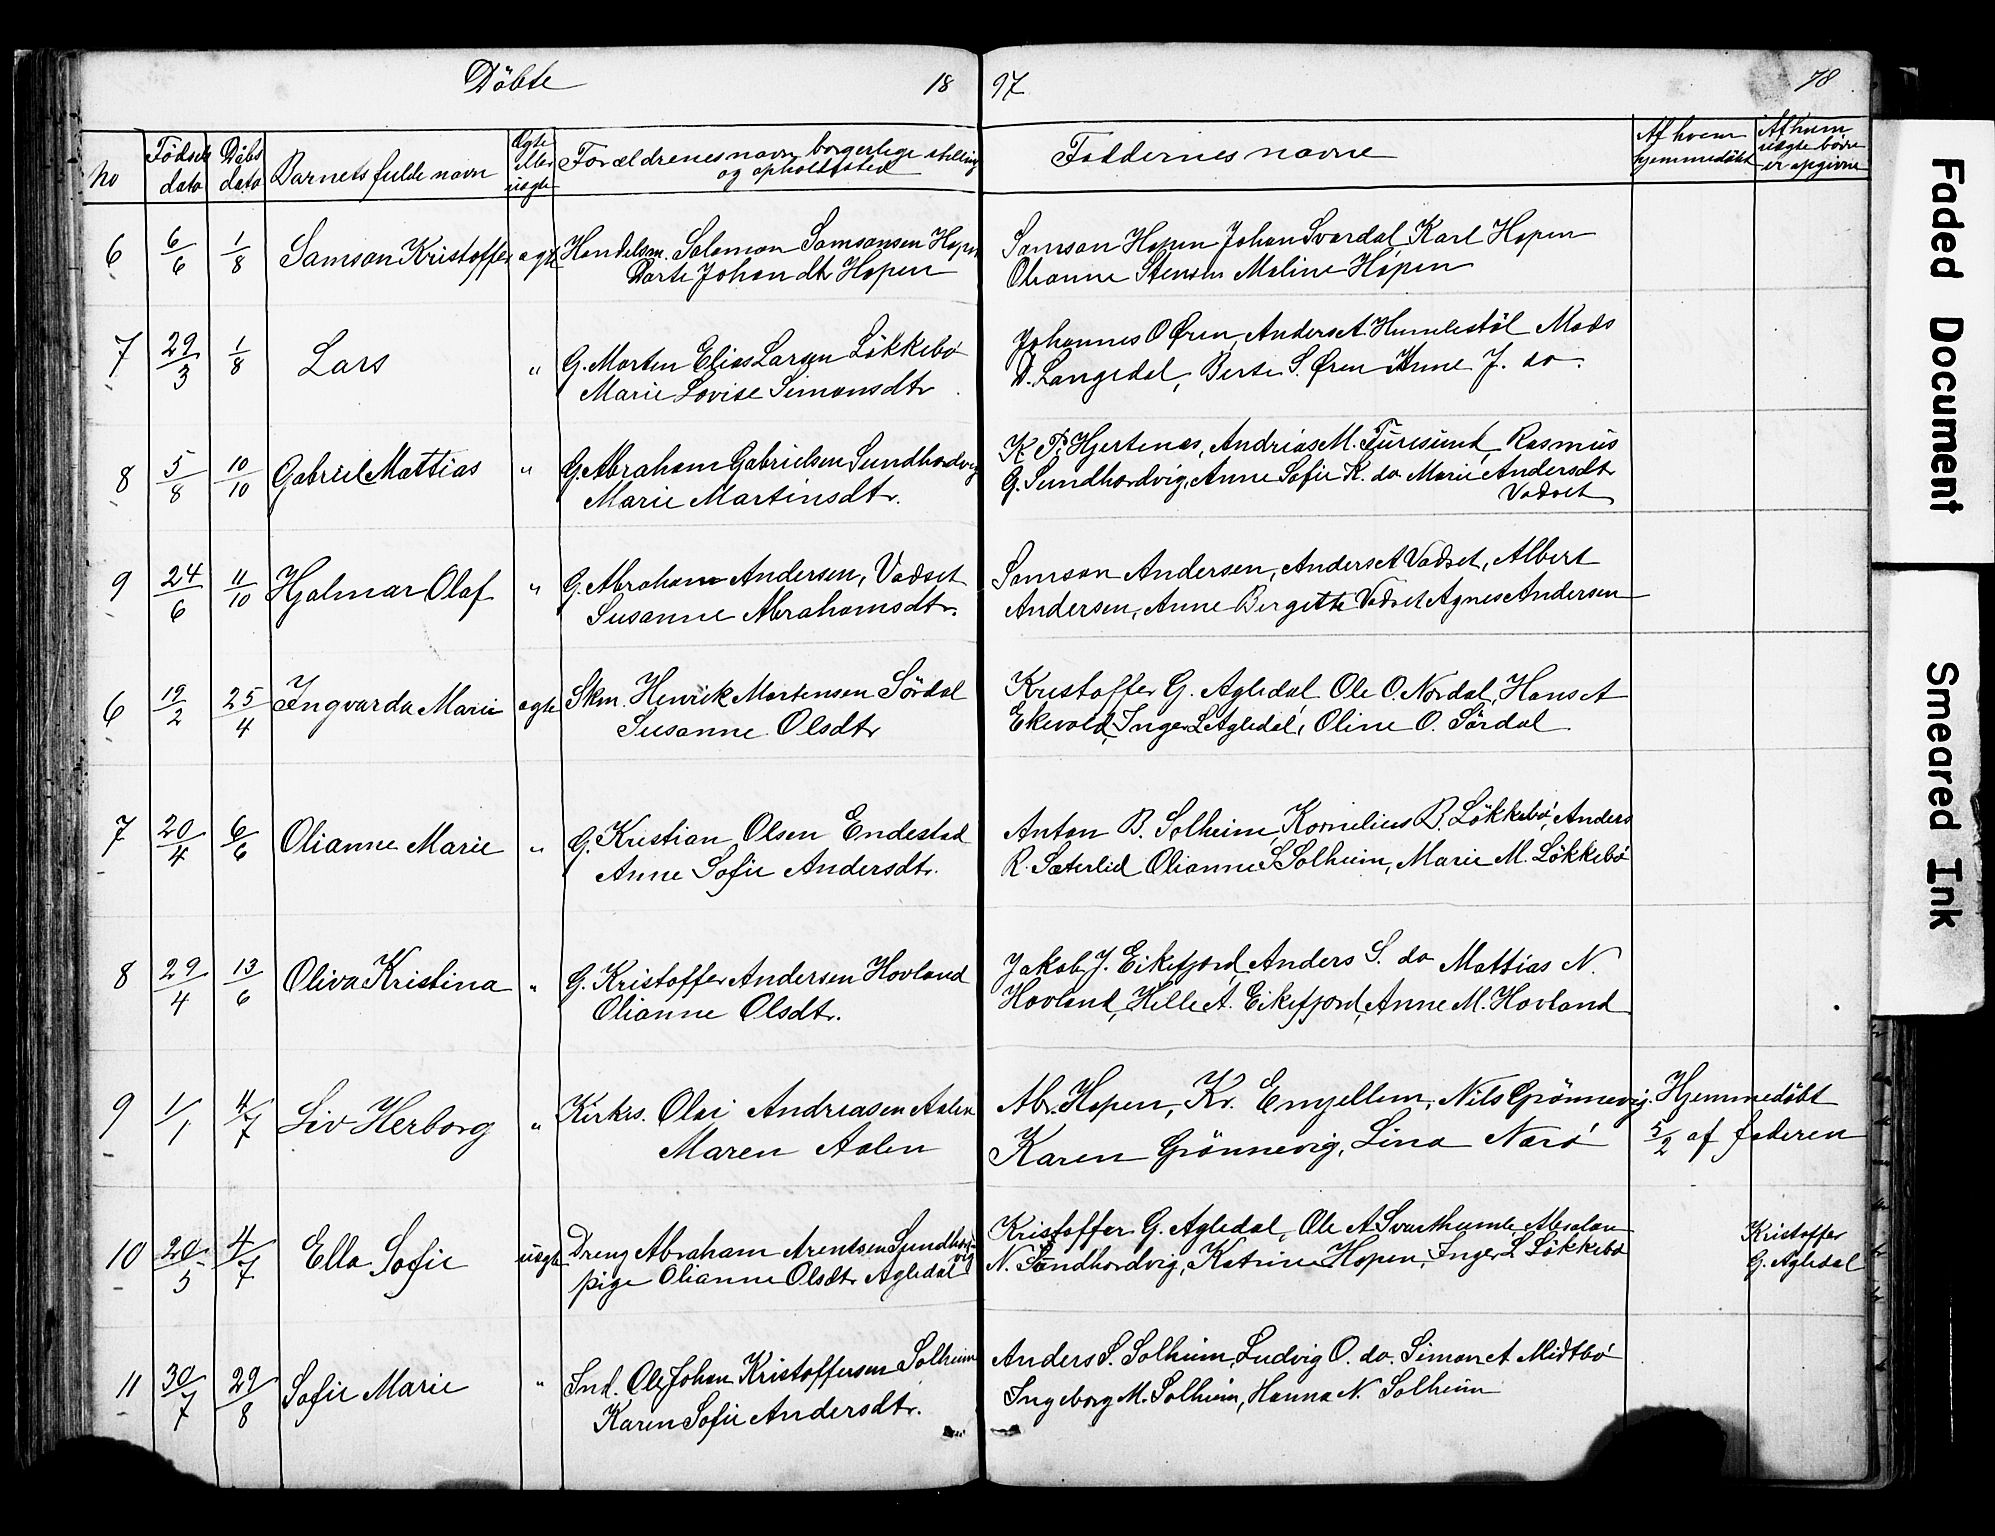 Döbte 18 97 78
No Födsels dato Döbs dato Barnets fulde navn Ægte eller uægte Forældrenes navn borgerlige stilling og opholdssted Faddernes navne Af hvem hjemmedöbt Af hvem uægte börn er opgivne
6 6/6 1/8 Samson Kristoffer ægte Handelsm. Salomon Samsonsen Hopen Samson Hopen Johan Svardal Karl Hopen
Dorte Johansdtr Hopen Olianne Stensen Maline Hopen
7 29/3 1/8 Lars " G. Morten Elias Larsen Lökkebö Johannes O Øren, Anders A. Humlestöl Mads
Marie Lovise Simonsdtr D. Langedal, Berte S. Øren Anne J. do.
8 5/8 10/10 Gabriel Mattias " G. Abraham Gabrielsen Sundhordvig K. P. Hjertenæs, Andrias M. Furesund, Rasmus
Marie Martinsdtr. G. Sundhordvig, Anne Sofie K. do Marie Andersdtr
Vadset
9 24/6 11/10 Hjalmar Olaf " G. Abraham Andersen, Vadset Samson Andersen, Anders A Vadset, Albert
Susanne Abrahamsdtr. Andersen, Anne Bergitte Vadset Agnes Andersen
6 19/2 25/4 Ingvarda Marie ægte Skm. Henrik Mortensen Sördal Kristoffer G. Agledal, Ole O. Nordal, Hans A
Susanne Olsdtr Ekevold, Inger L Agledal, Oline O. Sördal
7 20/4 6/6 Olianne Marie " G. Kristian Olsen Endestad Anton B. Solheim, Kornelius B. Lökkebö, Anders
Anne Sofie Andersdtr. R. Sæterlid Olianne S Solheim, Marie M. Lökkebö
8 29/4 13/6 Oliva Kristina " G. Kristoffer Andersen Hovland Jakob J. Eikefjord, Anders S. do Mattias N.
Olianne Olsdtr. Hovland, Helle A. Eikefjord, Anne M. Hovland
9 1/1 4/7 Liv Herborg " Kirkes. Olai Andreasen Aalen Abr. Hopen, Kr. Engellem, Nils Grönnevig. Hjemmedöbt
Maren Aalen Karen Grönnevig, Lina Nærö 5/2 af faderen
10 20/5 4/7 Ella Sofie uægte Dreng Abraham Arentsen Sundhordvig Kristoffer G. Agledal, Ole A Svarthumle, Absalon Kristoffer
pige Olianne Olsdtr Agledal N. Sandhordvig, Katrine Hopen, Inger L Lökkebö G. Agledal
11 30/7 29/8 Sofie Marie " Ind. Ole Johan Kristoffersen Solheim Anders S. Solheim, Ludvig O. do. Simon A Midtbö
Karen Sofie Andersdtr. Ingeborg M. Solheim, Hanna N. Solheim
Faded Document
Smeared Ink